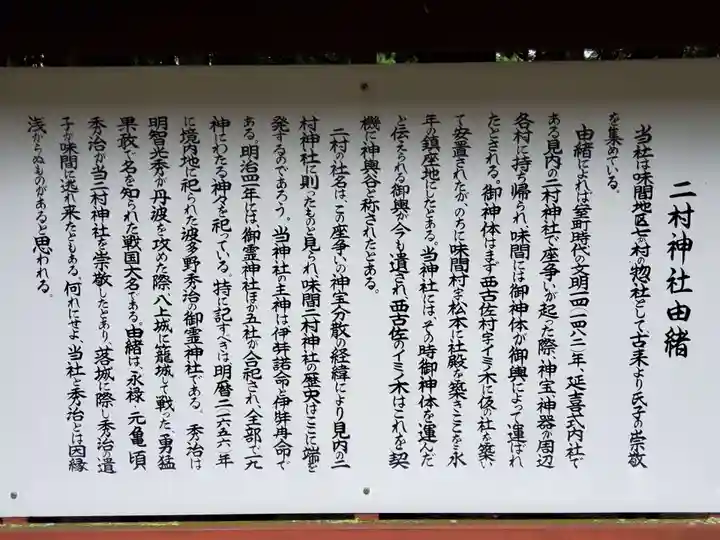 二村神社由緒
当社は味間地区七か村の惣社として、古来より氏子の崇敬
を集めている。
由緒によれば室町時代の文明一四(一四八二)年、延喜式内社で
ある見内の二村神社で座争いが起った際、神宝・神器が周辺
各村に持ち帰られ、味間には御神体が御輿によって運ばれ
たとされる。御神体はまず西古佐村字イミノ木に仮の社を築い
て安置されたが、のちに味間村字松本に社殿を築きここを永
年の鎮座地にしたとある。当神社には、その時御神体を運んだ
と伝えられる御輿が今も遺され、西古佐のイミノ木はこれを契
機に神輿谷と称されたとある。
二村の社名は、この座争いの神宝分散の経緯により見内の二
村神社に則ったものと見られ、味間二村神社の歴史はここに端を
発するのであろう。当神社の主神は伊弉諾命と伊弉冉命で
ある。明治四一年には、御霊神社ほか五社が合祀され、全部で一九
神にわたる神々を祀っている。特に記すべきは明暦二(一六五六)年
に境内地に祀られた波多野秀治の御霊神社である。秀治は
明智光秀が丹波を攻めた際、八上城に籠城して戦った、勇猛
果敢で名を知られた戦国大名である。由緒は、永禄・元亀頃
秀治が当二村神社を崇敬したとあり、落城に際し秀治の遺
子が味間に逃れ来たともある。何れにせよ、当社と秀治とは因縁
浅からぬものがあると思われる。